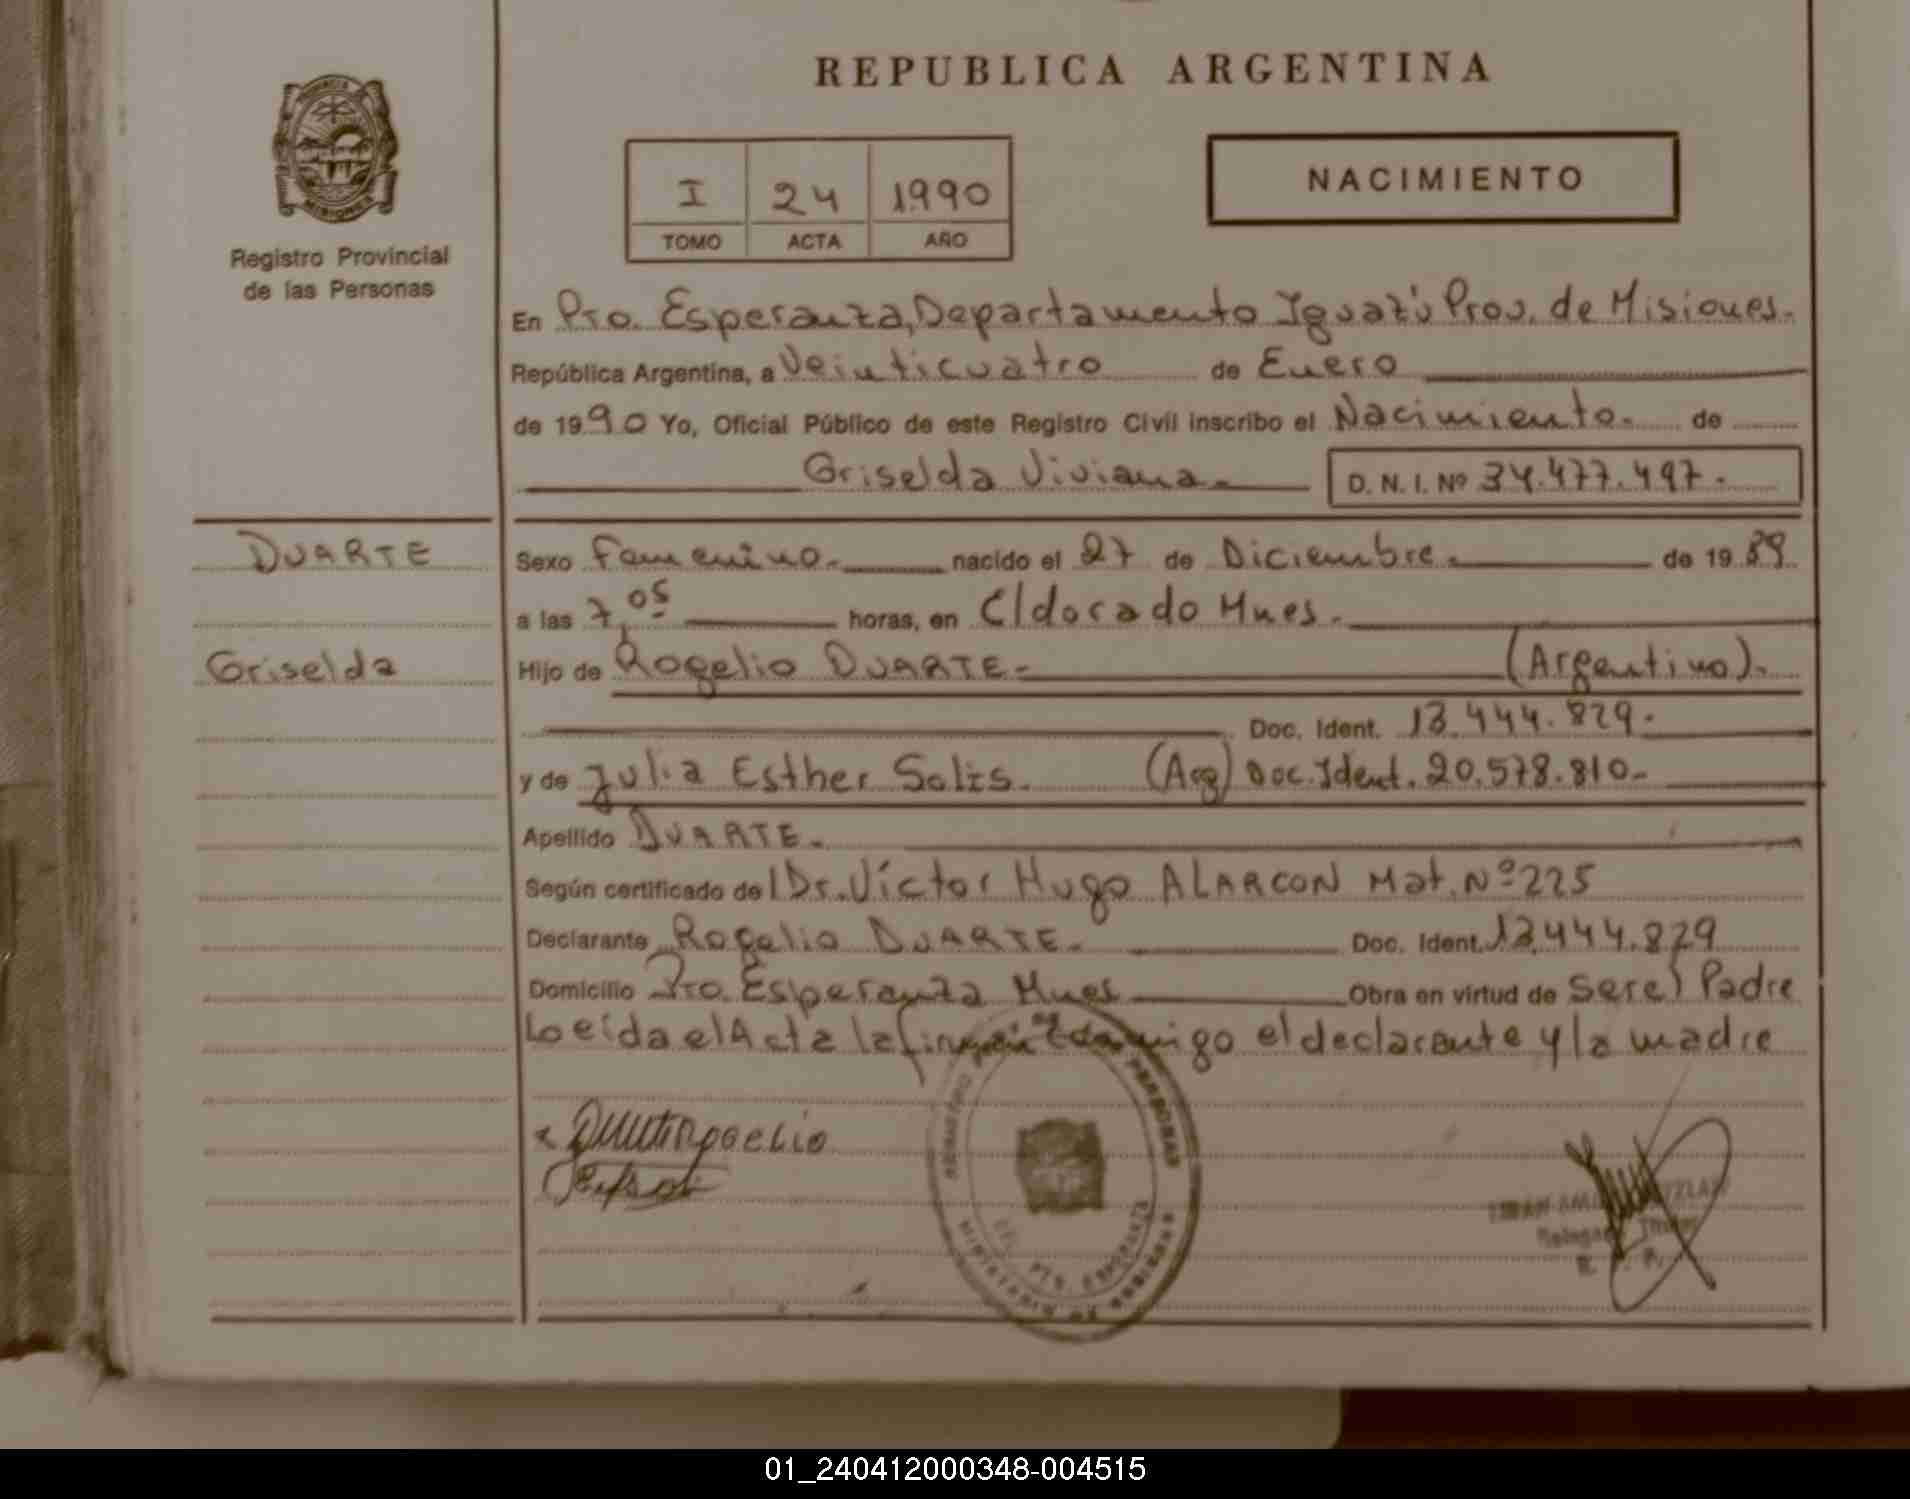 REPUBLICA ARGENTINA
I 24 1990
TOMO ACTA AÑO
NACIMIENTO
Registro Provincial
de las Personas
En Pto. Esperanza, Departamento Iguazú Prov. de Misiones.
República Argentina, a Veinticuatro de Enero
de 1990 Yo, Oficial Público de este Registro Civil inscribo el Nacimiento. de
Griselda Viviana. D. N. I. Nº 34.477.497.
DUARTE
Griselda
Sexo Femenino. nacido el 27 de Diciembre. de 1989.
a las 7,05 horas, en Eldorado Mnes.
Hijo de Rogelio DUARTE. (Argentino).
Doc. Ident. 13.444.829.
y de Julia Esther Solis. (Arg) Doc. Ident. 20.578.810.
Apellido DUARTE.
Según certificado del Dr. Víctor Hugo ALARCON Mat. Nº 225
Declarante Rogelio DUARTE. Doc. Ident. 13.444.829
Domicilio Pto. Esperanza Mnes Obra en virtud de ser el Padre
Leída el Acta la firman conmigo el declarante y la madre
REGISTRO PERSONAS
PTO. ESPERANZA
MINISTERIO DE GOBIERNO
01_240412000348-004515